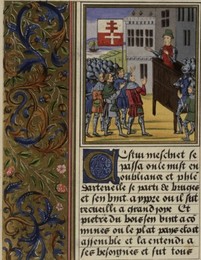 Cestui meschief se
passa on le mist en
oubliance et phle
dartevelle se parti de bruges
et sen vint a yppre ou il fut
recueilli a grand joye Et
pierre du bois sen vint a co
mines ou le plat pays estoit
assemble et la entendi a
ses besoignes et fut tous